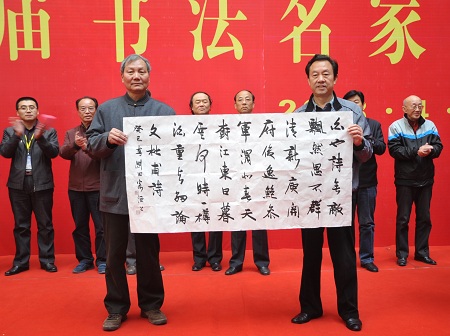 届书法名家
白也詩無敵
飄然思不群
清新庾開
府俊逸鮑參
軍渭北春天
樹江東日暮
雲何時一樽
酒重與細論
文杜甫詩